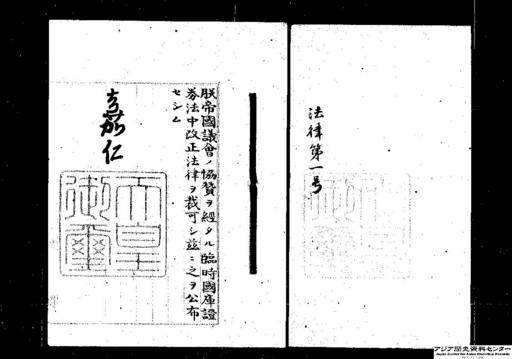 法律第一号
朕帝國議會ノ協贊ヲ經タル臨時國庫證
券法中改正法律ヲ裁可シ茲ニ之ヲ公布
セシム
嘉仁
天皇
御璽
アジア歴史資料センター
Japan Center for Asian Historical Records